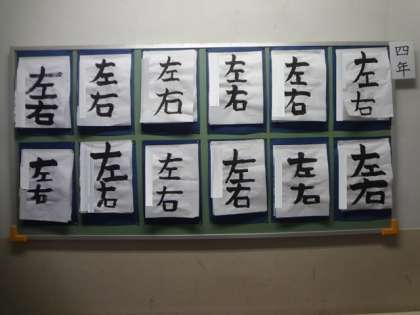 四年
左右
左右
左右
左右
左右
左右
左右
左右
左右
左右
左右
左右